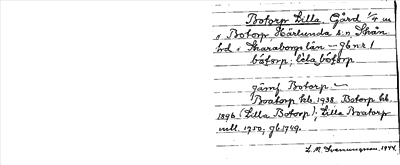 Botorp Lilla. Gård 1/4 m
s Botorp, Härlunda sn, Skån.
hd. Skaraborgs län — gb nr 1
bótorp; lẹla bótorp
jämf Botorp —
Boatorp kb. 1938. Botorp kb.
1896 (Lilla Botorp); Lilla Boatorp
1750, gb 1749.
1944.